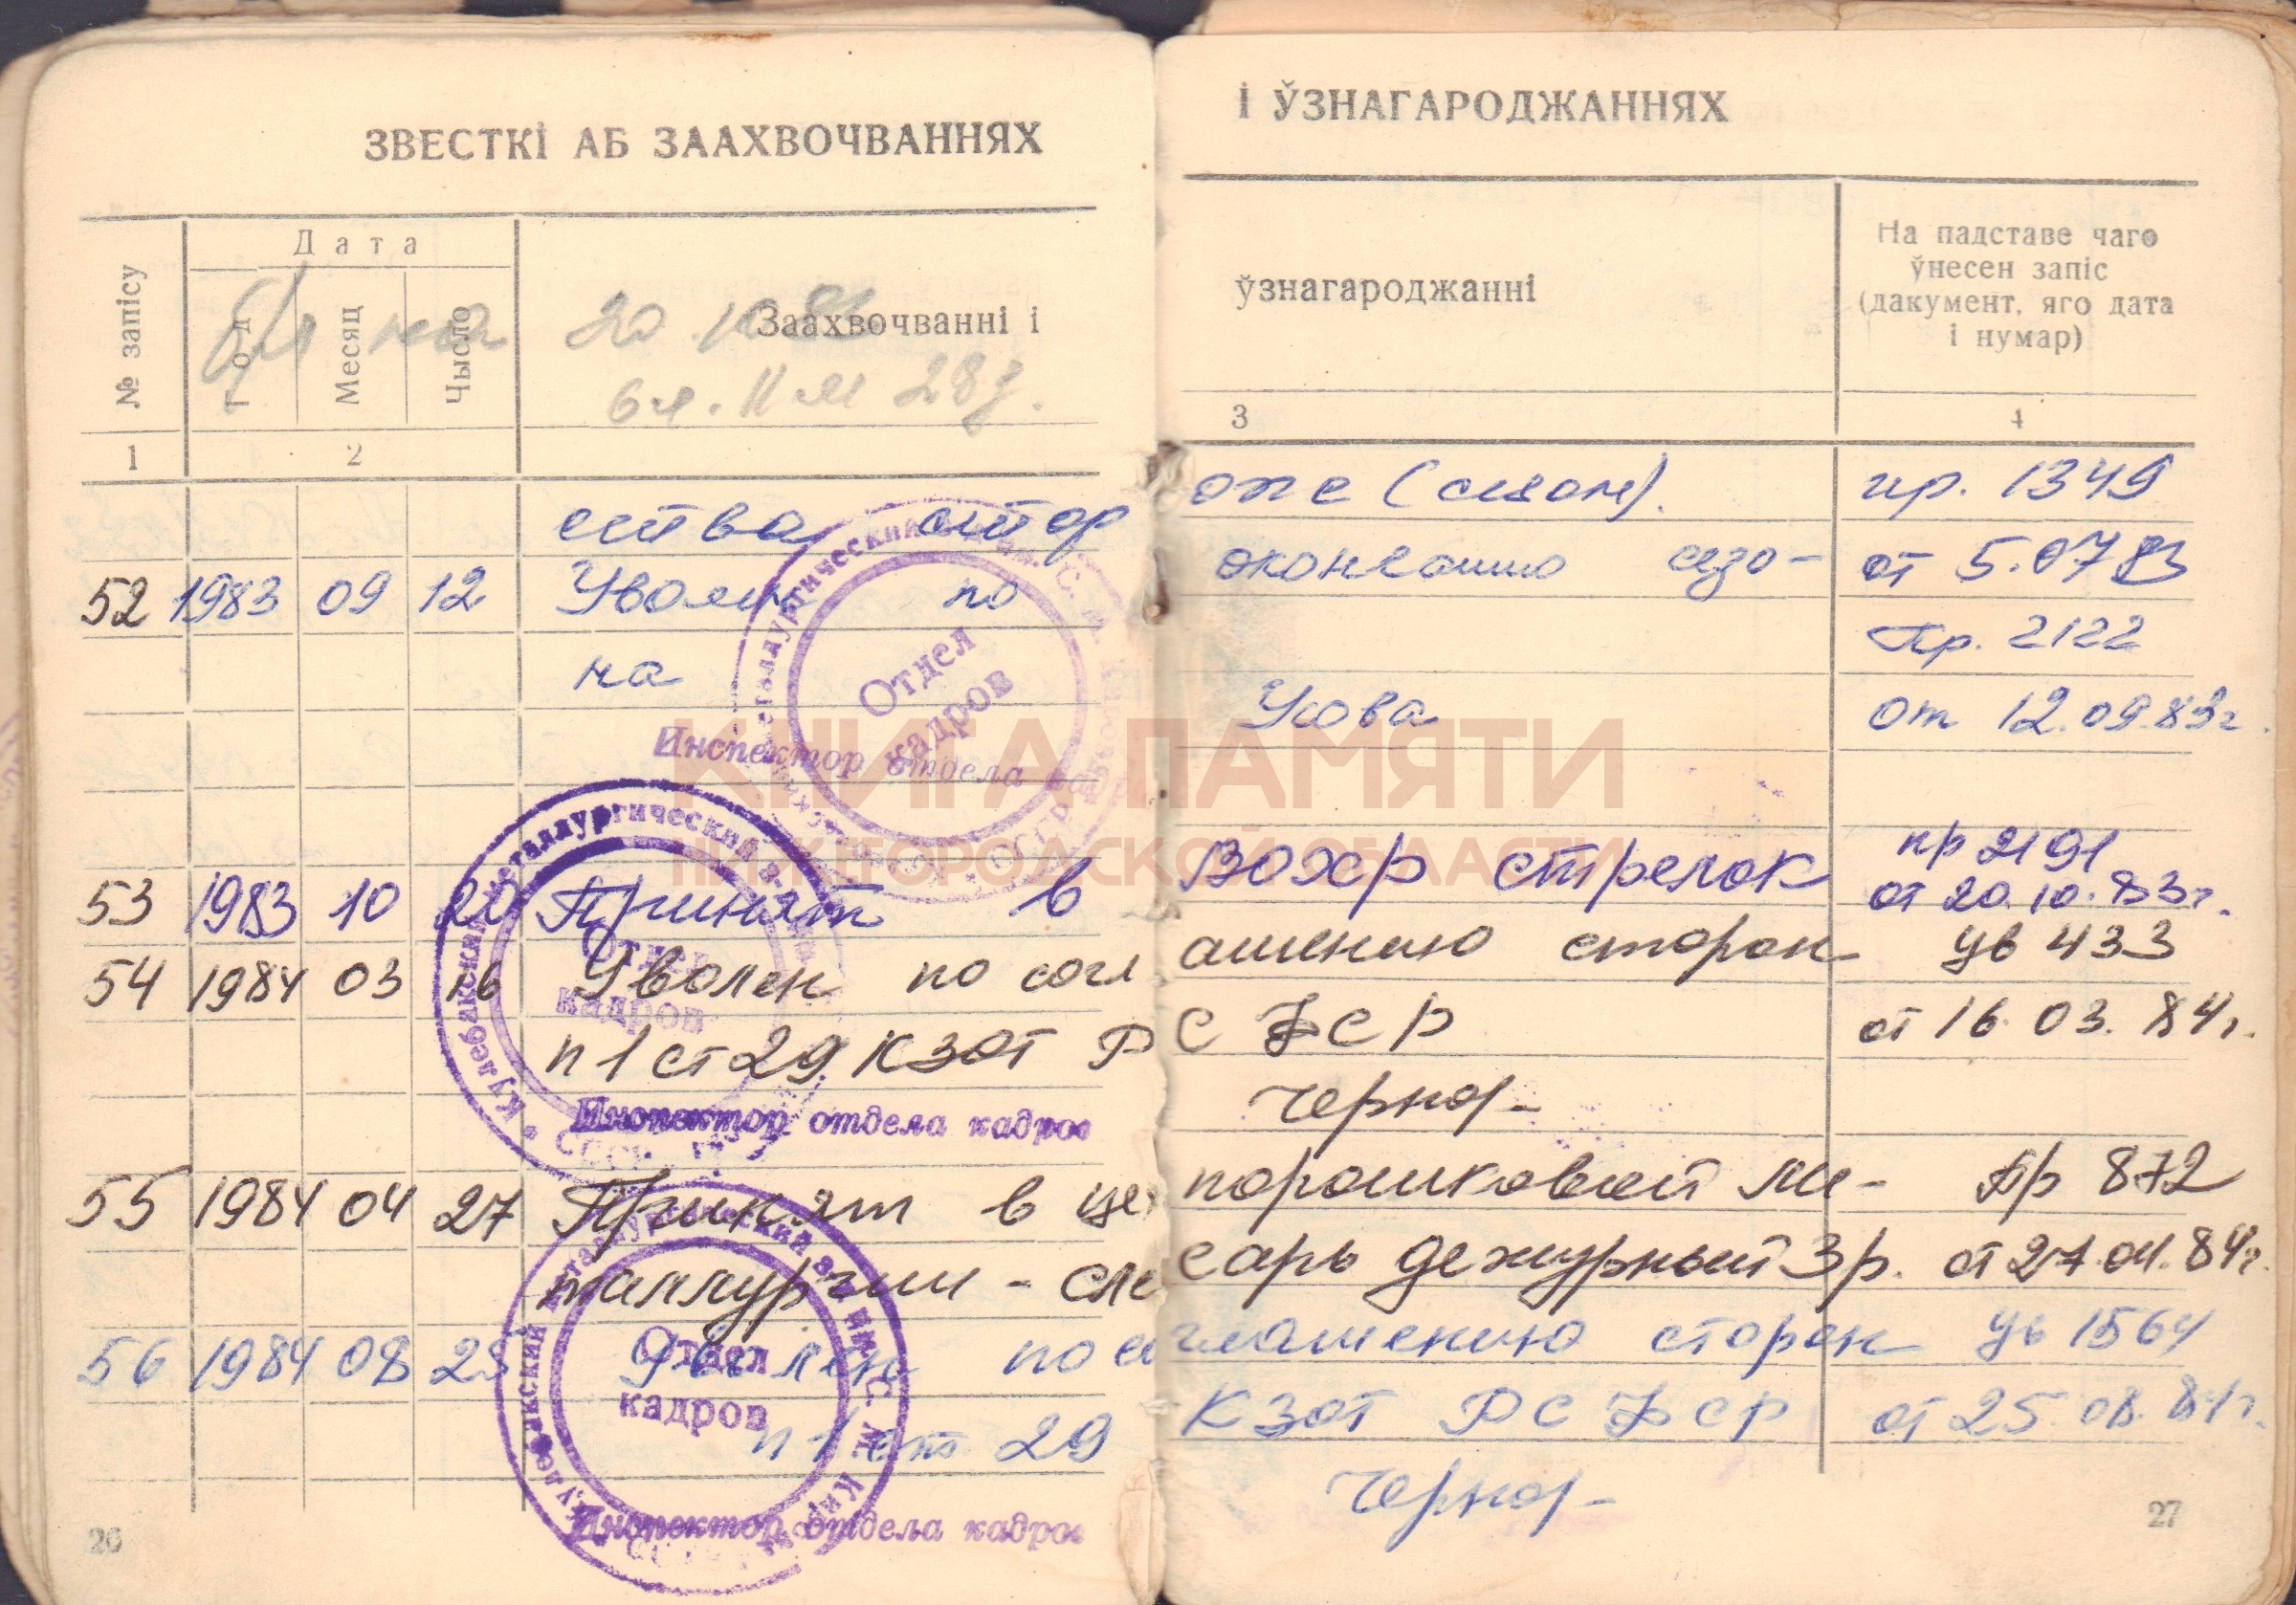 ЗВЕСТКІ АБ ЗААХВОЧВАННЯХ
І ЎЗНАГАРОДЖАННЯХ
№ запісу
Дата
Год
Месяц
Чысло
Заахвочванні і
ўзнагароджанні
На падставе чаго
ўнесен запіс
(дакумент, яго дата
і нумар)
20.10
6 л. 11 м 28 д.
1 2 3 4
ства стороже (сезон). пр. 1349
от 5.07 83
52 1983 09 12 Уволен по окончанию сезо-
на Пр. 2122
от 12.09.83г.
Инспектор отдела кадров
Отдел
кадров
КНИГА ПАМЯТИ
НИЖЕГОРОДСКОЙ ОБЛАСТИ
53 1983 10 20 Принят в Вохр стрелок пр 2191
от 20.10.83г.
54 1984 03 16 Уволен по соглашению сторон Ув 433
п 1 ст 29 КЗОТ РСФСР от 16.03.84г.
Инспектор отдела кадров
Кулебакский металлургический з-д
Отдел
кадров
55 1984 04 27 Принят в цех порошковой ме- Пр 872
таллургии - слесарь дежурный 3р. от 27.04.84г.
56 1984 08 25 Уволен по соглашению сторон Ув 1564
п 1 ст 29 КЗОТ РСФСР от 25.08.84г.
Кулебакский металлургический з-д им. С. М. Кирова
Отдел
кадров
Инспектор отдела кадров
26
27